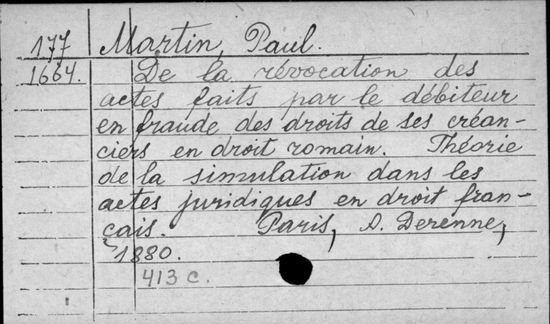 177 Martin, Paul.
1664. De la révocation des
actes faits par le débiteur
en fraude des droits de ses créan-
ciers en droit romain. Théorie
de la simulation dans les
actes juridiques en droit fran-
çais. Paris, A. Derenne,
1880.
413 c.